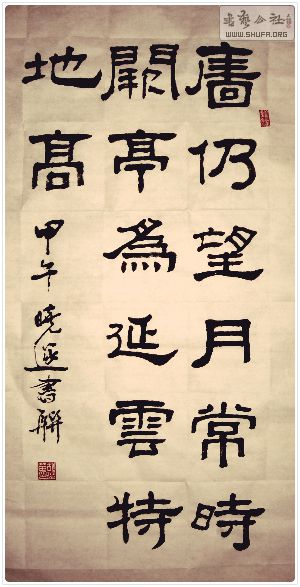 書藝公社
WWW.SHUFA.ORG
嗇仍望月常時
闕亭為延雲特
地高
甲午曉書聯